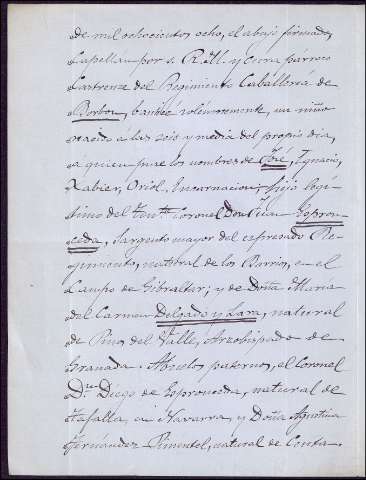 de mil ochocientos ocho, el abajo firmado,
Capellan por S. R. M. y cura párroco
Castrense del Regimiento Caballería de
Borbon, bauticé solemnemente, un niño
nacido a las seis y media del propio dia,
a quien puse los nombres de José, Ignacio,
Xabier, Oriol, Encarnacion; hijo legí-
timo del Tente. Coronel Don Juan Espron-
ceda, Sargento mayor del espresado Re-
gimiento, natural de los Barrios, en el
Campo de Gibraltar; y de Doña Maria
del Carmen Delgado y Lara, natural
de Pinos del Valle, Arzobispado de
Granada. Abuelos paternos, el Coronel
Dn. Diego de Espronceda, natural de
Tafalla, en Navarra, y Doña Agustina
Fernández Pimentel, natural de Ceuta.